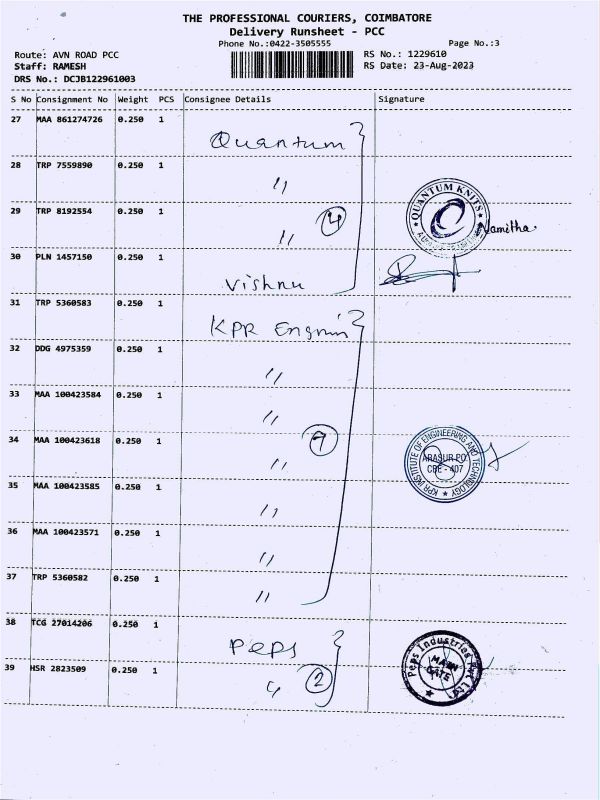 THE PROFESSIONAL COURIERS, COIMBATORE
Delivery Runsheet - PCC
Phone No.:0422-3505555
Page No.:3
Route: AVN ROAD PCC
RS No.: 1229610
Staff: RAMESH
RS Date: 23-Aug-2023
DRS No.: DCJB122961003
S No Consignment No Weight PCS Consignee Details Signature
27 MAA 861274726 0.250 1 Quantum
28 TRP 7559890 0.250 1 "
29 TRP 8192554 0.250 1 " 4
QUANTUM KNITS
Namitha
30 PLN 1457150 0.250 1 Vishnu
31 TRP 5360583 0.250 1 KPR Engnin
32 DDG 4975359 0.250 1 "
33 MAA 100423584 0.250 1 "
34 MAA 100423618 0.250 1 " 7
KPR INSTITUTE OF ENGINEERING AND TECHNOLOGY
ARASUR PO.
CBE - 407
35 MAA 100423585 0.250 1 "
36 MAA 100423571 0.250 1 "
37 TRP 5360582 0.250 1 "
38 TCG 27014206 0.250 1 Peps
39 HSR 2823509 0.250 1 " 2
Peps Industries Pvt Ltd
MAIN
GATE